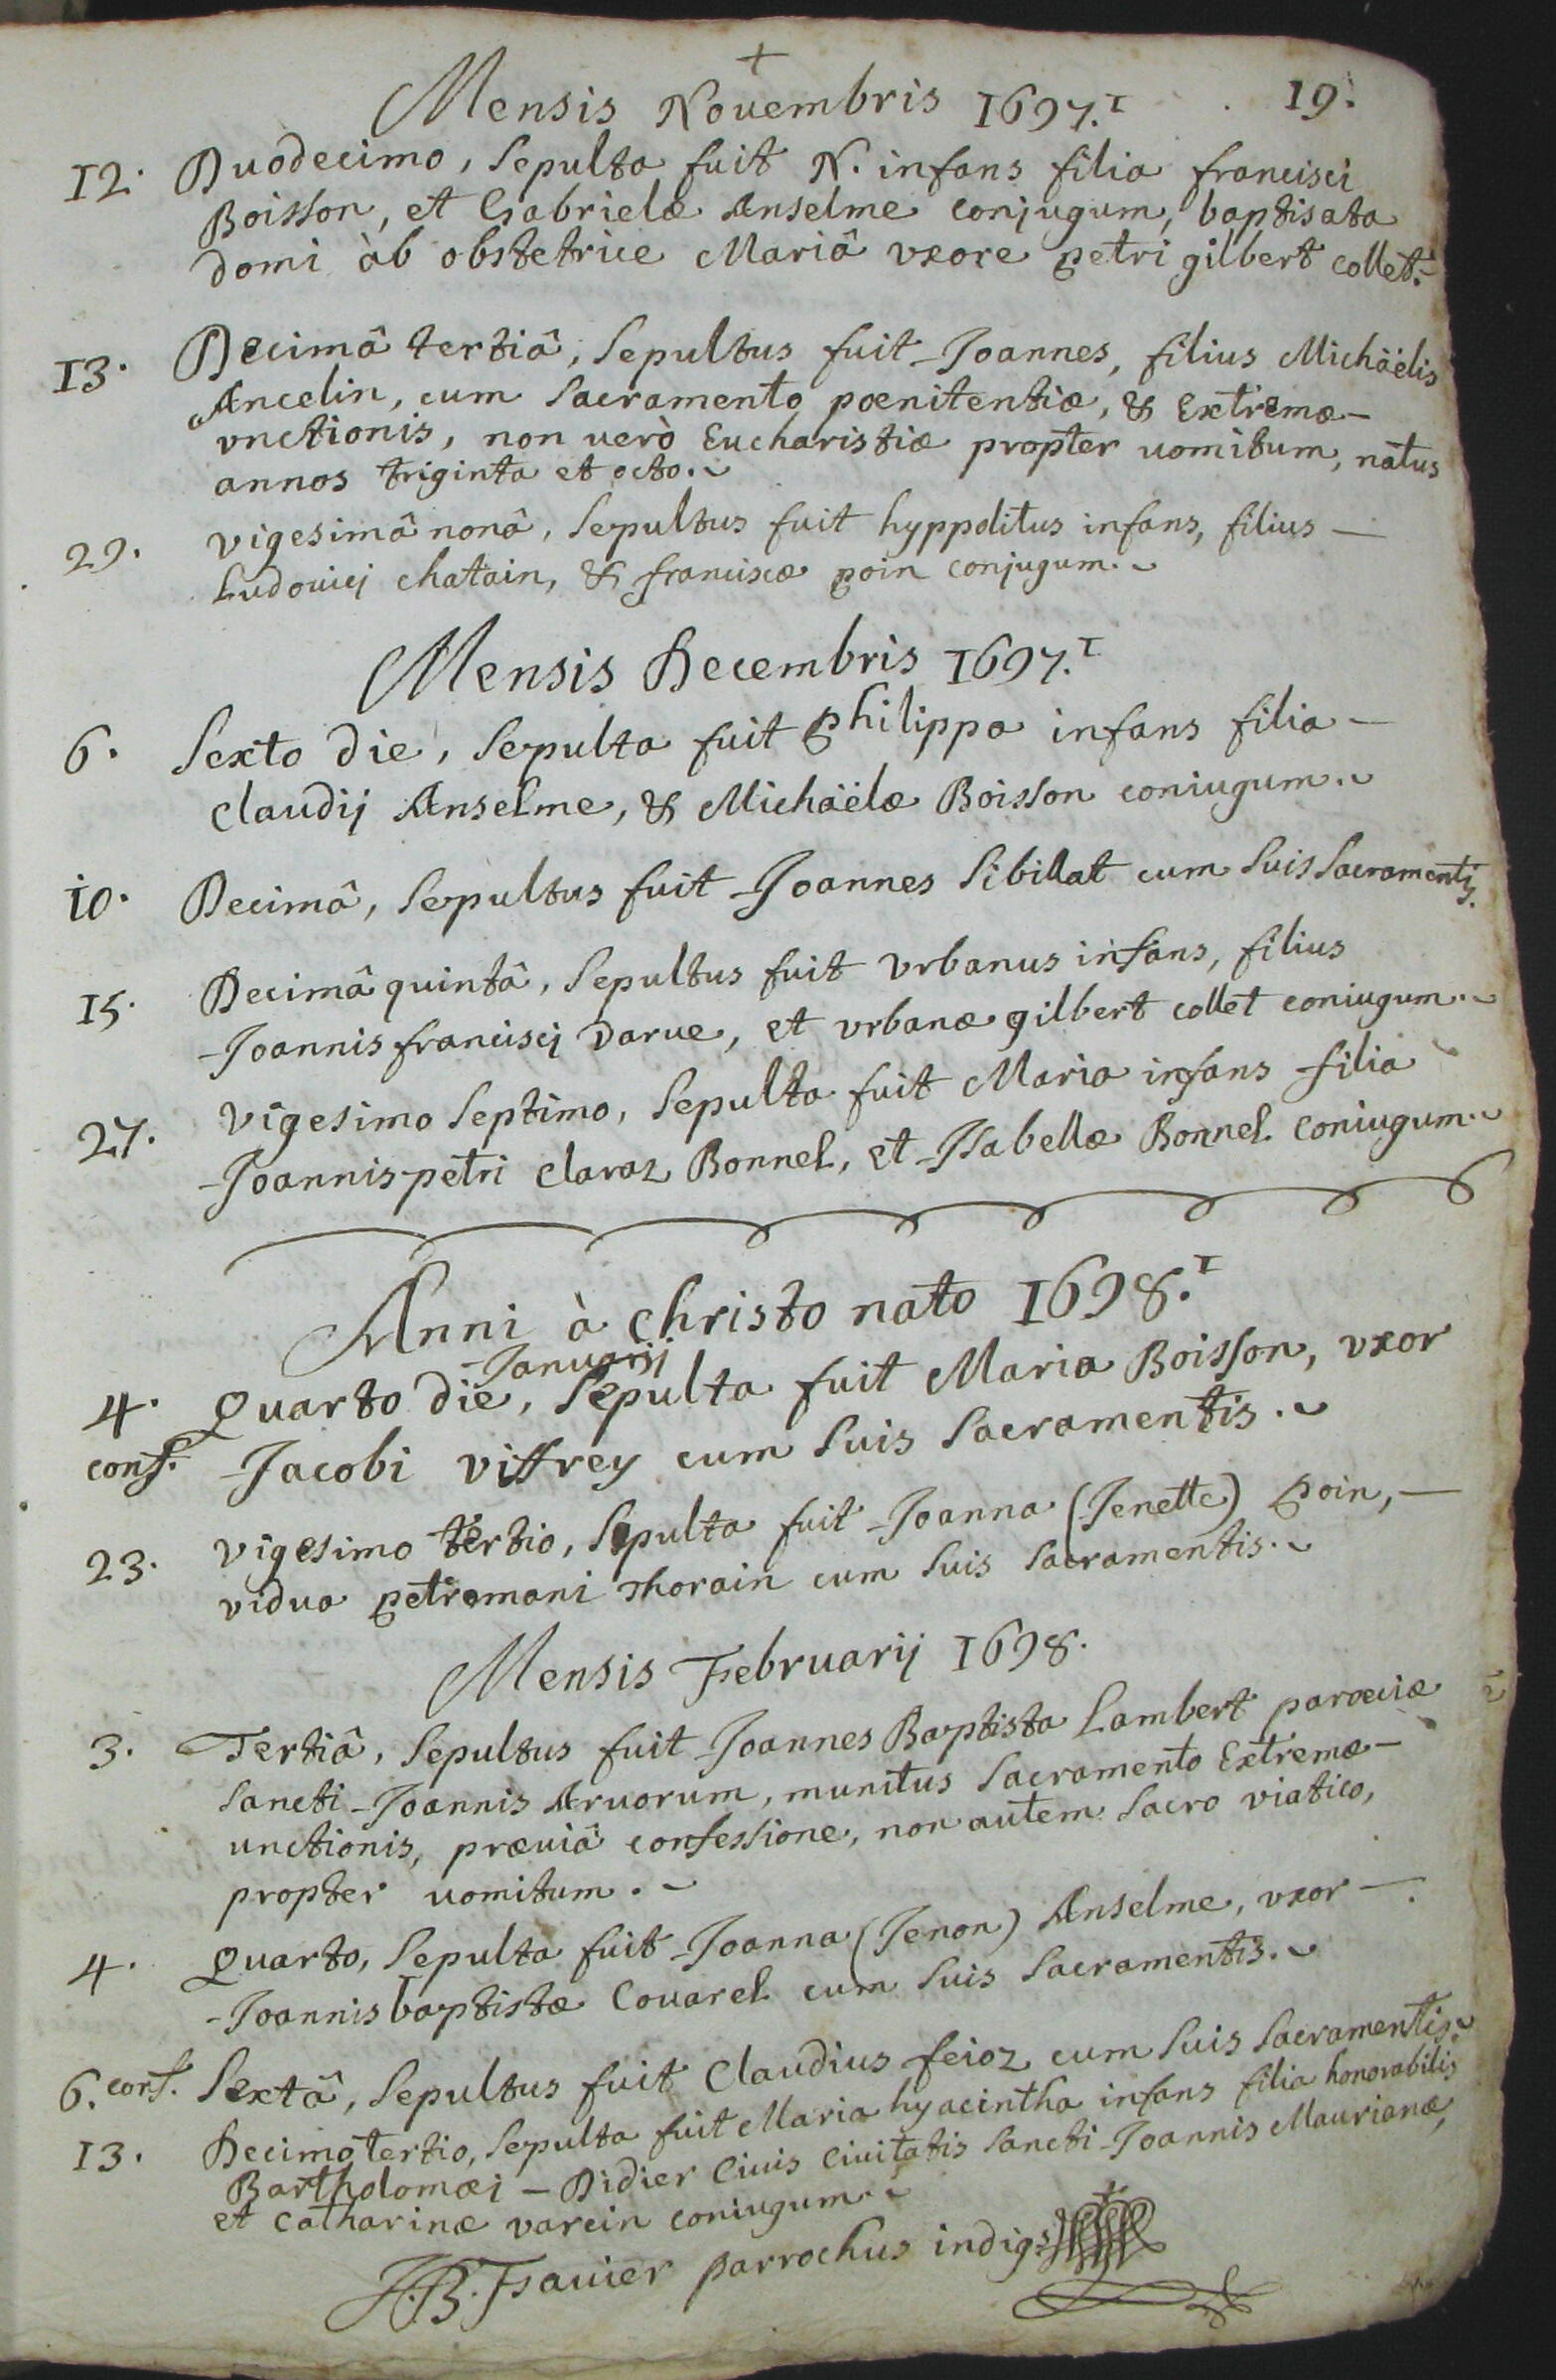 +
Mensis Nouembris 1697.ı 19.
12. Duodecimo, Sepulta fuit N. infans filia francisci
Boisson, et Gabrielæ Anselme conjugum, baptisata
domi àb obstetrice Mariâ vxore petri gilbert collet.
13. Decimâ tertiâ, Sepultus fuit Joannes, filius Michäelis
Ancelin, cum Sacramento pœnitentiæ, & Extremæ –
vnctionis, non uerò Eucharistiæ propter uomitum, natus
annos triginta et octo.
29. vigesimâ nonâ, Sepultus fuit hyppolitus infans, filius –
Ludouicj chatain, & franciscæ poin conjugum.
Mensis Decembris 1697.ı
6. Sexto die, Sepulta fuit philippa infans filia –
Claudij Anselme, & Michäelæ Boisson coniugum.
10. Decimâ, Sepultus fuit Joannes Sibillat cum Suis Sacramentis.
15. Decimâ quintâ, Sepultus fuit vrbanus infans, filius
Joannis franciscj Darue, et vrbanæ gilbert collet coniugum.
27. vigesimo Septimo, Sepulta fuit Maria infans filia
Joannis petri claraz Bonnel, et Isabellæ Bonnel coniugum.
Anni à christo nato 1698.ı
Januarij
4. Quarto die, Sepulta fuit Maria Boisson, vxor
conf. Jacobi viffrey cum Suis Sacramentis.
23. vigesimo tertio, Sepulta fuit Joanna (Jenette) poin, –
vidua petremani Thorain cum Suis Sacramentis.
Mensis Februarij 1698.
3. Tertiâ, Sepultus fuit Joannes Baptista Lambert parœciæ
Sancti Joannis Aruorum, munitus Sacramento Extremæ –
unctionis, præuiâ confessione, non autem Sacro viatico,
propter uomitum.
4. Quarto, Sepulta fuit Joanna (Jenon) Anselme, vxor –
Joannis baptistæ Couarel cum Suis Sacramentis.
6. conf. Sextâ, Sepultus fuit Claudius feioz cum Suis Sacramentis.
13. Decimo tertio, Sepulta fuit Maria hyacintha infans filia honorabilis
Bartholomæi – Didier Ciuis Ciuitatis Sancti Joannis Maurianæ,
et Catharinæ varcin coniugum.
J.B. Fauier parrochus indig.s